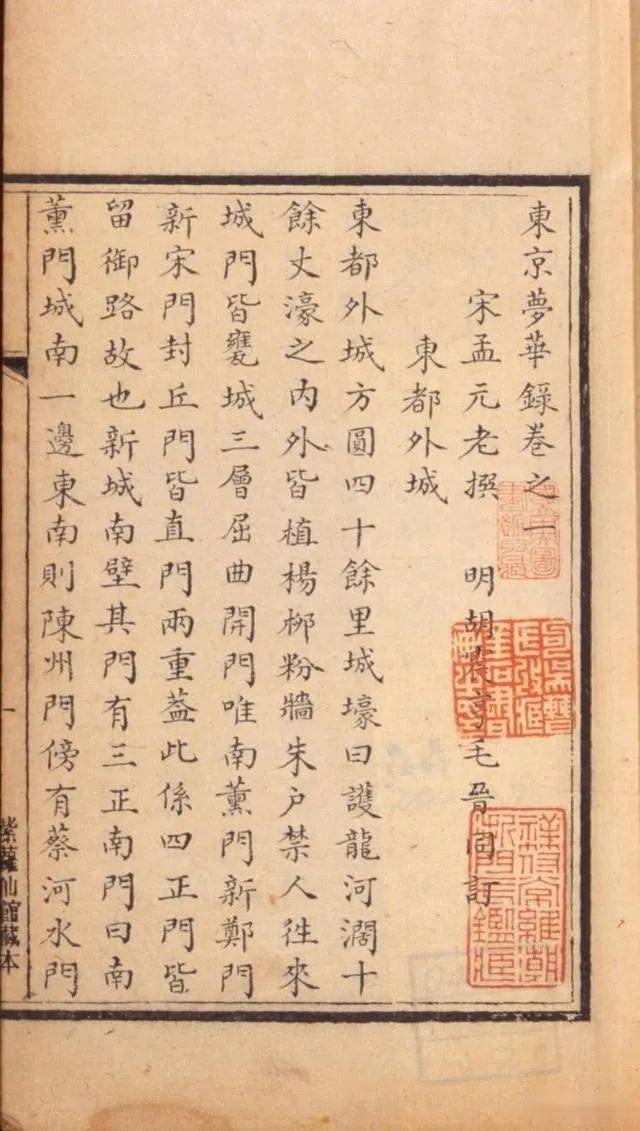 東京夢華錄卷之一
宋孟元老撰 明胡震亨毛晉同訂
東都外城
東都外城方圓四十餘里城壕曰護龍河濶十
餘丈濠之内外皆植楊桞粉牆朱户禁人徃來
城門皆甕城三層屈曲開門唯南薰門新鄭門
新宋門封丘門皆直門兩重葢此係四正門皆
留御路故也新城南壁其門有三正南門曰南
薰門城南一邊東南則陳州門傍有蔡河水門
一
紫蘿仙館藏本